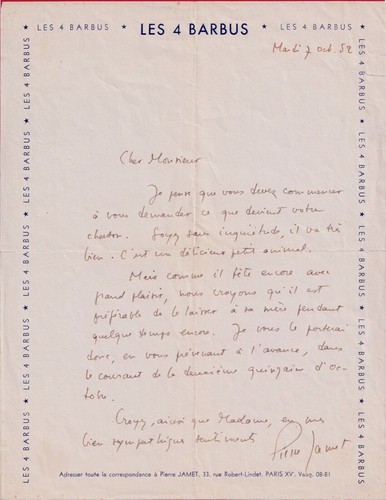 LES 4 BARBUS ★ LES 4 BARBUS ★ LES 4 BARBUS
Mardi 7 oct. 52
Cher Monsieur
Je pense que vous devez commencer
à vous demander ce que devient votre
chaton. Soyez sans inquiétude, il va très
bien. C'est un délicieux petit animal.
Mais comme il tète encore avec
grand plaisir, nous croyons qu'il est
préférable de le laisser à sa mère pendant
quelque temps encore. Je vous le porterai
donc, en vous prévenant à l'avance, dans
le courant de la deuxième quinzaine d'oc-
tobre.
Croyez, ainsi que Madame, en mes
bien sympathiques sentiments
Pierre Jamet
Adresser toute la correspondance à Pierre JAMET, 33, rue Robert-Lindet, PARIS XV. Vaug. 08-81
★ LES 4 BARBUS ★ LES 4 BARBUS ★ LES 4 BARBUS ★ LES 4 BARBUS ★
★ LES 4 BARBUS ★ LES 4 BARBUS ★ LES 4 BARBUS ★ LES 4 BARBUS ★